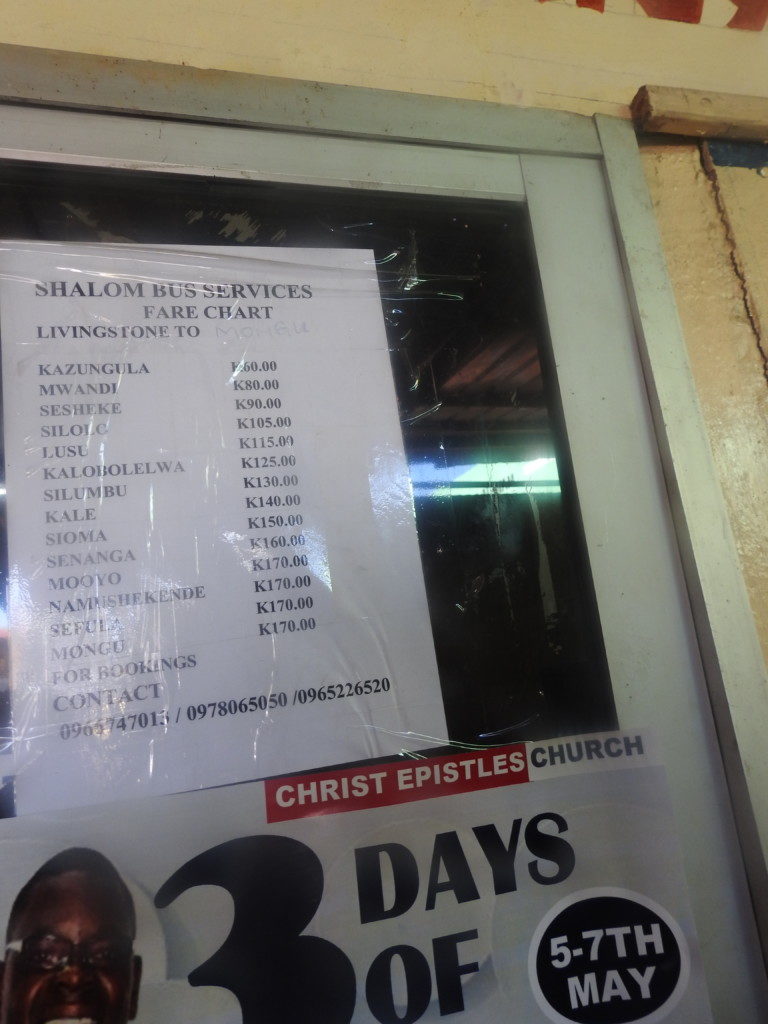 SHALOM BUS SERVICES
FARE CHART
LIVINGSTONE TO MONGU
KAZUNGULA K60.00
MWANDI K80.00
SESHEKE K90.00
SILOLO K105.00
LUSU K115.00
KALOBOLELWA K125.00
SILUMBU K130.00
KALE K140.00
SIOMA K150.00
SENANGA K160.00
MOOYO K170.00
NAMUSHEKENDE K170.00
SEFULA K170.00
MONGU K170.00
FOR BOOKINGS
CONTACT
0965747013 / 0978065050 /0965226520
CHRIST EPISTLES CHURCH
3 DAYS
OF
5-7TH
MAY